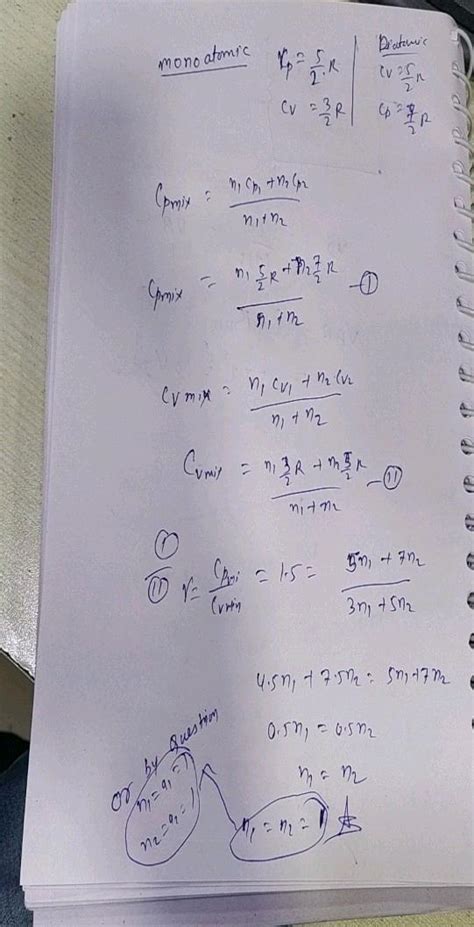 monoatomic
Cp = 5/2 . R
Cv = 3/2 R
Diatomic
Cv = 5/2 R
Cp = 7/2 R
Cpmix = n1 Cp1 + n2 Cp2 / n1 + n2
Cpmix = n1 5/2 R + n2 7/2 R / n1 + n2 — I
Cvmix = n1 Cv1 + n2 Cv2 / n1 + n2
Cvmix = n1 3/2 R + n2 5/2 R / n1 + n2 — II
I / II γ = Cpmi / Cvmin = 1.5 = 5n1 + 7n2 / 3n1 + 5n2
4.5n1 + 7.5n2 = 5n1 + 7n2
0.5n1 = 0.5n2
n1 = n2
n1 = n2 = 1
or by question
n1 = a1 = 1
n2 = a2 = 1